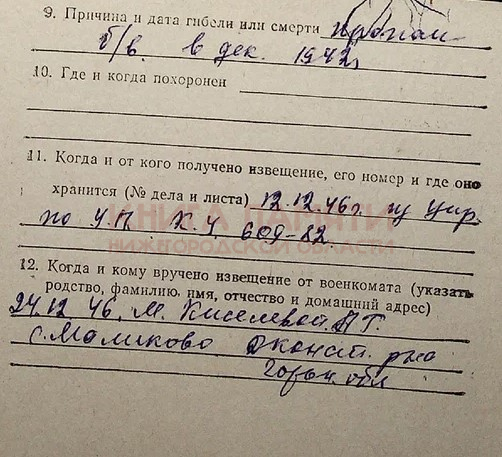 9. Причина и дата гибели или смерти пропал
б/в. в дек. 1942г
10. Где и когда похоронен
11. Когда и от кого получено извещение, его номер и где оно
хранится (№ дела и листа) 12.12.46г. из упр.
КНИГА ПАМЯТИ
по У.П К.У 609-82
НИЖЕГОРОДСКОЙ ОБЛАСТИ
12. Когда и кому вручено извещение от военкомата (указать
родство, фамилию, имя, отчество и домашний адрес)
24.12.46. М. Киселевой
с. Маликово р-на
Горьк. обл